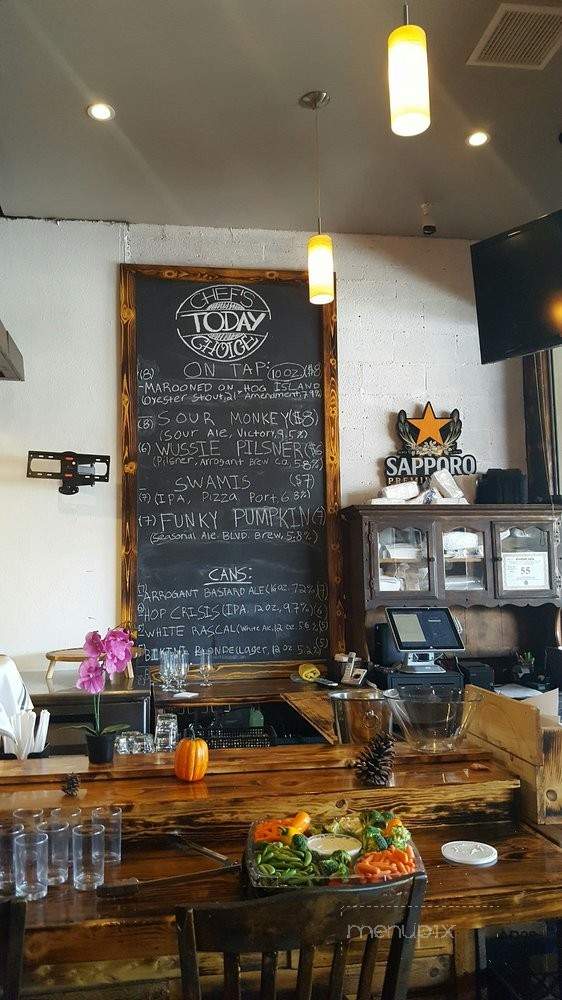 CHEF'S
TODAY
CHOICE
ON TAP:
(8) 10 OZ ($8
- MAROONED ON HOG ISLAND
(Oyester Stout, 21st Amendment, 7.9%
(8) SOUR MONKEY ($8)
(Sour Ale, Victory, 9.5%)
(6) WUSSIE PILSNER ($6
(Pilsner, Arrogant Brew Co. 5.8%)
SWAMIS ($7)
(7) (IPA, Pizza Port 6.8%)
(7) FUNKY PUMPKIN (7)
(Seasonal Ale BLVD. Brew, 5.8%)
CANS:
ARROGANT BASTARD ALE (16 oz. 7.2%) (7)
HOP CRISIS (IPA, 12 OZ, 9.7%) (6)
WHITE RASCAL (White Ale, 12 oz. 5.6% (5)
BIKINI BLONDE (Lager, 12 oz 5.2%) (5)
SAPPORO
PREMIUM
55
menupix